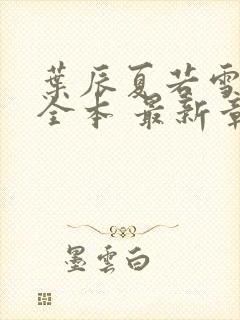 葉辰夏若雪
全本 最新章
墨雲白